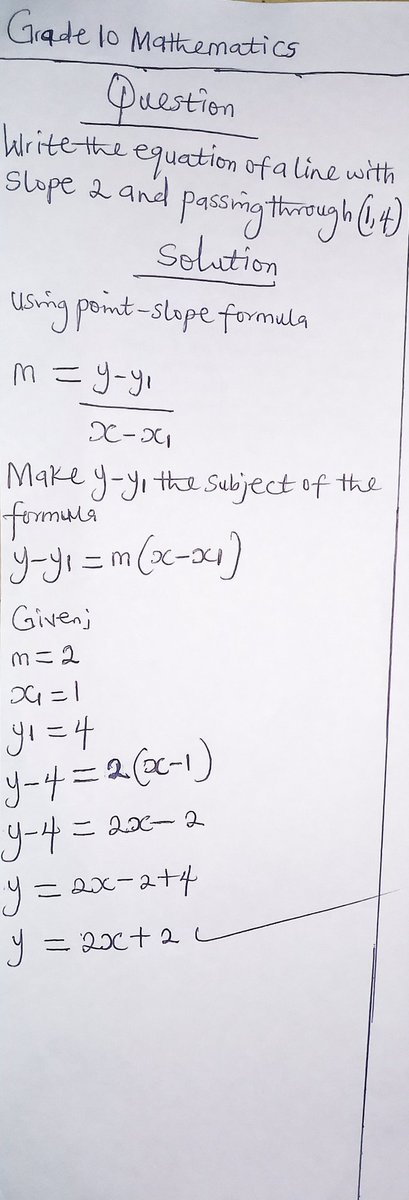 Grade 10 Mathematics
Question
Write the equation of a line with
Slope 2 and passing through (1,4)
Solution
using point-slope formula
m = y-y₁
x-x₁
Make y-y₁ the subject of the
formula
y-y₁ = m(x-x₁)
Given;
m=2
x₁=1
y₁=4
y-4=2(x-1)
y-4= 2x-2
y = 2x-2+4
y = 2x+2